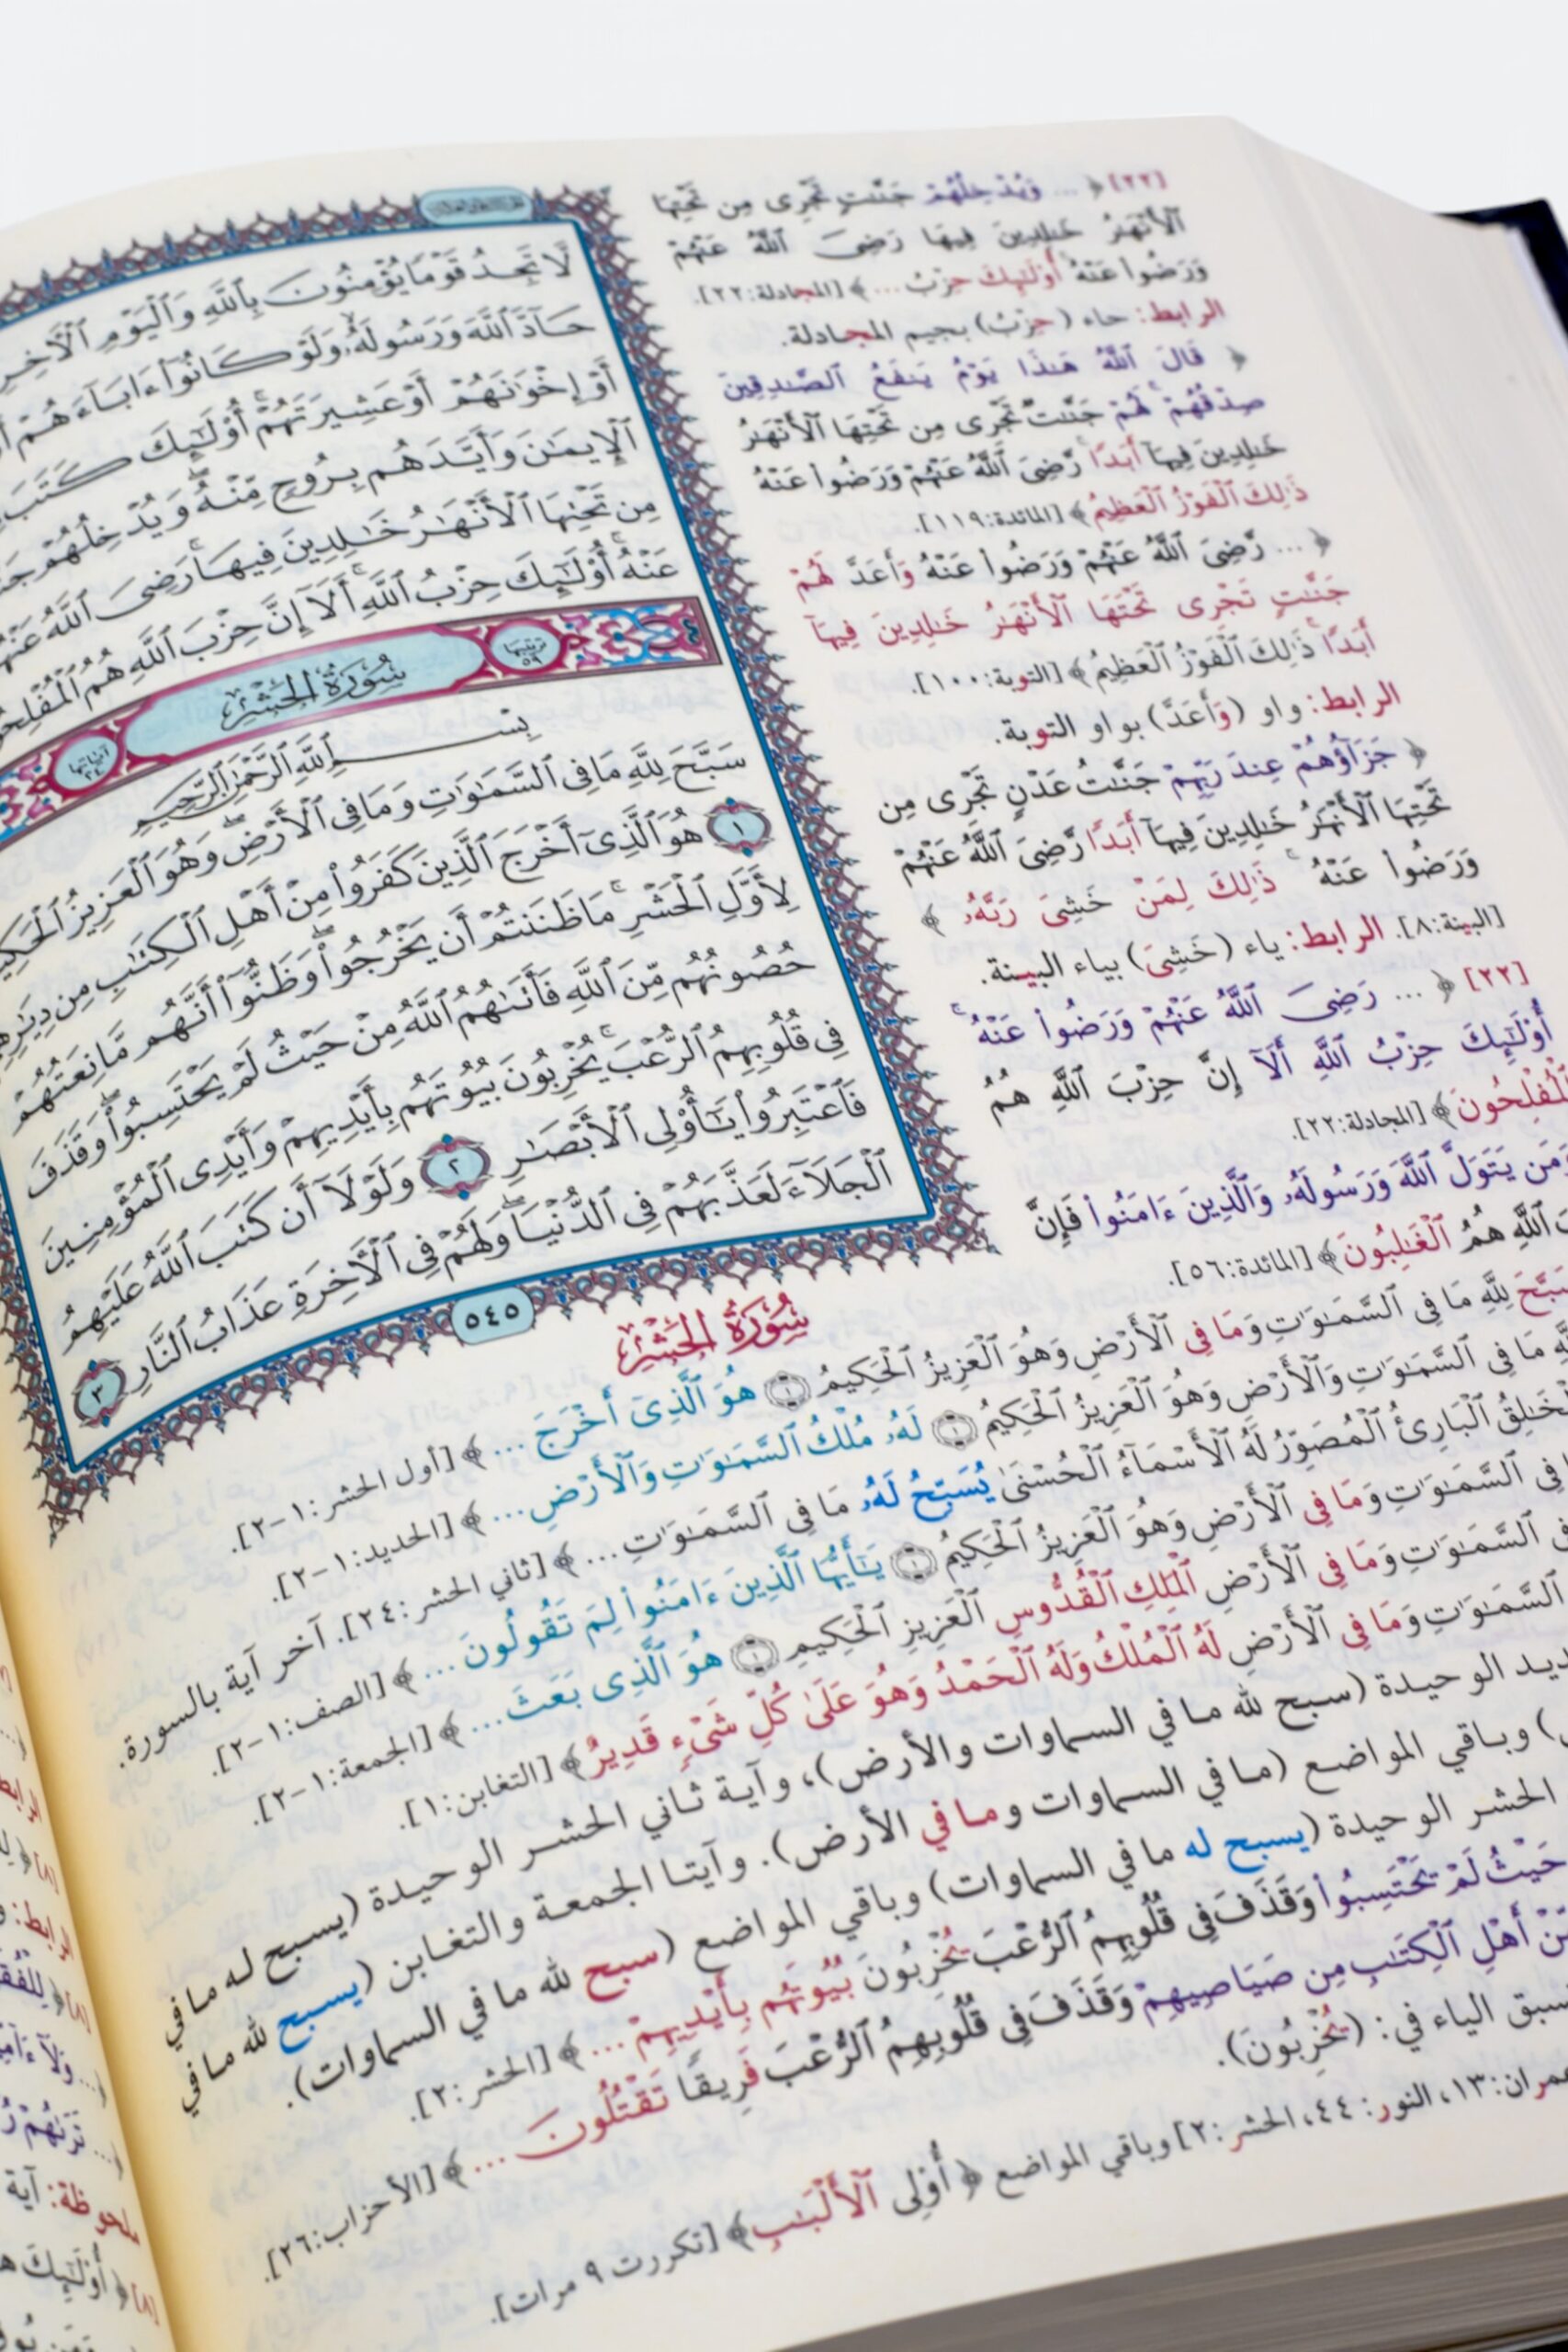 لَّا تَجِدُ قَوْمًا يُؤْمِنُونَ بِٱللَّهِ وَٱلْيَوْمِ ٱلْآخِرِ
حَآدَّ ٱللَّهَ وَرَسُولَهُۥ وَلَوْ كَانُوٓا۟ ءَابَآءَهُمْ
أَوْ إِخْوَٰنَهُمْ أَوْ عَشِيرَتَهُمْ ۚ أُو۟لَٰٓئِكَ كَتَبَ
ٱلْإِيمَٰنَ وَأَيَّدَهُم بِرُوحٍ مِّنْهُ ۖ وَيُدْخِلُهُمْ
مِن تَحْتِهَا ٱلْأَنْهَٰرُ خَٰلِدِينَ فِيهَا ۚ رَضِىَ ٱللَّهُ
عَنْهُ ۚ أُو۟لَٰٓئِكَ حِزْبُ ٱللَّهِ ۚ أَلَآ إِنَّ حِزْبَ ٱللَّهِ هُمُ
ترتيبها ٥٩ سُورَةُ الحَشْرِ آياتها ٢٤
بِسْمِ ٱللَّهِ ٱلرَّحْمَٰنِ ٱلرَّحِيمِ
سَبَّحَ لِلَّهِ مَا فِى ٱلسَّمَٰوَٰتِ وَمَا فِى ٱلْأَرْضِ ۖ وَهُوَ ٱلْعَزِيزُ
١ هُوَ ٱلَّذِىٓ أَخْرَجَ ٱلَّذِينَ كَفَرُوا۟ مِنْ أَهْلِ ٱلْكِتَٰبِ مِن
لِأَوَّلِ ٱلْحَشْرِ ۚ مَا ظَنَنتُمْ أَن يَخْرُجُوا۟ ۖ وَظَنُّوٓا۟ أَنَّهُم مَّانِعَتُهُمْ
حُصُونُهُم مِّنَ ٱللَّهِ فَأَتَىٰهُمُ ٱللَّهُ مِنْ حَيْثُ لَمْ يَحْتَسِبُوا۟ ۖ وَقَذَفَ
فِى قُلُوبِهِمُ ٱلرُّعْبَ ۚ يُخْرِبُونَ بُيُوتَهُم بِأَيْدِيهِمْ وَأَيْدِى ٱلْمُؤْمِنِينَ
فَٱعْتَبِرُوا۟ يَٰٓأُو۟لِى ٱلْأَبْصَٰرِ ٢ وَلَوْلَآ أَن كَتَبَ ٱللَّهُ عَلَيْهِمُ
ٱلْجَلَآءَ لَعَذَّبَهُمْ فِى ٱلدُّنْيَا ۖ وَلَهُمْ فِى ٱلْءَاخِرَةِ عَذَابُ ٱلنَّارِ ٣
٥٤٥
[٢٢] ﴿ ... وَيُدْخِلُهُمْ جَنَّٰتٍ تَجْرِى مِن تَحْتِهَا
ٱلْأَنْهَٰرُ خَٰلِدِينَ فِيهَا رَضِىَ ٱللَّهُ عَنْهُمْ
وَرَضُوا۟ عَنْهُ أُو۟لَٰٓئِكَ حِزْبُ ... ﴾ [المجادلة:٢٢].
الرابط: حاء (حِزْبُ) بجيم المجادلة.
﴿ قَالَ ٱللَّهُ هَٰذَا يَوْمُ يَنفَعُ ٱلصَّٰدِقِينَ
صِدْقُهُمْ ۚ لَهُمْ جَنَّٰتٌ تَجْرِى مِن تَحْتِهَا ٱلْأَنْهَٰرُ
خَٰلِدِينَ فِيهَآ أَبَدًا ۚ رَّضِىَ ٱللَّهُ عَنْهُمْ وَرَضُوا۟ عَنْهُ
ذَٰلِكَ ٱلْفَوْزُ ٱلْعَظِيمُ﴾ [المائدة:١١٩].
﴿ ... رَّضِىَ ٱللَّهُ عَنْهُمْ وَرَضُوا۟ عَنْهُ وَأَعَدَّ لَهُمْ
جَنَّٰتٍ تَجْرِى تَحْتَهَا ٱلْأَنْهَٰرُ خَٰلِدِينَ فِيهَآ
أَبَدًا ۚ ذَٰلِكَ ٱلْفَوْزُ ٱلْعَظِيمُ﴾ [التوبة:١٠٠].
الرابط: واو (وَأَعَدَّ) بواو التوبة.
﴿ جَزَآؤُهُمْ عِندَ رَبِّهِمْ جَنَّٰتُ عَدْنٍ تَجْرِى مِن
تَحْتِهَا ٱلْأَنْهَٰرُ خَٰلِدِينَ فِيهَآ أَبَدًا رَّضِىَ ٱللَّهُ عَنْهُمْ
وَرَضُوا۟ عَنْهُ ۚ ذَٰلِكَ لِمَنْ خَشِىَ رَبَّهُۥ ﴾
[البينة:٨]. الرابط: ياء (خَشِىَ) بياء البينة.
[٢٢] ﴿ ... رَضِىَ ٱللَّهُ عَنْهُمْ وَرَضُوا۟ عَنْهُ ۚ
أُو۟لَٰٓئِكَ حِزْبُ ٱللَّهِ أَلَآ إِنَّ حِزْبَ ٱللَّهِ هُمُ
ٱلْمُفْلِحُونَ﴾ [المجادلة:٢٢].
وَمَن يَتَوَلَّ ٱللَّهَ وَرَسُولَهُۥ وَٱلَّذِينَ ءَامَنُوا۟ فَإِنَّ
ٱللَّهِ هُمُ ٱلْغَٰلِبُونَ﴾ [المائدة:٥٦].
سُورَةُ الحَشْرِ
سَبَّحَ لِلَّهِ مَا فِى ٱلسَّمَٰوَٰتِ وَمَا فِى ٱلْأَرْضِ وَهُوَ ٱلْعَزِيزُ ٱلْحَكِيمُ ١ هُوَ ٱلَّذِىٓ أَخْرَجَ ... ﴾ [أول الحشر:١-٢].
مَا فِى ٱلسَّمَٰوَٰتِ وَٱلْأَرْضِ وَهُوَ ٱلْعَزِيزُ ٱلْحَكِيمُ ١ لَهُۥ مُلْكُ ٱلسَّمَٰوَٰتِ وَٱلْأَرْضِ... ﴾ [الحديد:١-٢].
ٱلْخَٰلِقُ ٱلْبَارِئُ ٱلْمُصَوِّرُ لَهُ ٱلْأَسْمَآءُ ٱلْحُسْنَىٰ يُسَبِّحُ لَهُۥ مَا فِى ٱلسَّمَٰوَٰتِ... ﴾ [ثاني الحشر:٢٤]. آخر آية بالسورة.
فِى ٱلسَّمَٰوَٰتِ وَمَا فِى ٱلْأَرْضِ وَهُوَ ٱلْعَزِيزُ ٱلْحَكِيمُ ١ يَٰٓأَيُّهَا ٱلَّذِينَ ءَامَنُوا۟ لِمَ تَقُولُونَ ... ﴾ [الصف:١-٢].
ٱلسَّمَٰوَٰتِ وَمَا فِى ٱلْأَرْضِ ٱلْمَلِكِ ٱلْقُدُّوسِ ٱلْعَزِيزِ ٱلْحَكِيمِ ١ هُوَ ٱلَّذِى بَعَثَ... ﴾ [الجمعة:١-٢].
ٱلسَّمَٰوَٰتِ وَمَا فِى ٱلْأَرْضِ لَهُ ٱلْمُلْكُ وَلَهُ ٱلْحَمْدُ وَهُوَ عَلَىٰ كُلِّ شَىْءٍ قَدِيرٌ﴾ [التغابن:١].
الوحيدة (سبح لله ما في السماوات والأرض)، وآية ثاني الحشر الوحيدة (يسبح له ما في
وباقي المواضع (ما في السماوات وما في الأرض). وآيتا الجمعة والتغابن (يسبح لله ما في
الحشر الوحيدة (يسبح له ما في السماوات) وباقي المواضع (سبح لله ما في السماوات).
حَيْثُ لَمْ يَحْتَسِبُوا۟ وَقَذَفَ فِى قُلُوبِهِمُ ٱلرُّعْبَ يُخْرِبُونَ بُيُوتَهُم بِأَيْدِيهِمْ ... ﴾ [الحشر:٢].
مِّنْ أَهْلِ ٱلْكِتَٰبِ مِن صَيَاصِيهِمْ وَقَذَفَ فِى قُلُوبِهِمُ ٱلرُّعْبَ فَرِيقًا تَقْتُلُونَ ... ﴾ [الأحزاب:٢٦].
سبق الياء في: (يُخْرِبُونَ).
عمران:١٣، النور:٤٤، الحشر:٢] وباقي المواضع ﴿ أُو۟لِى ٱلْأَلْبَٰبِ﴾ [تكررت ٩ مرات].